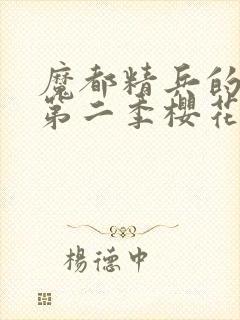 魔都精兵的
第二季樱花
杨德中